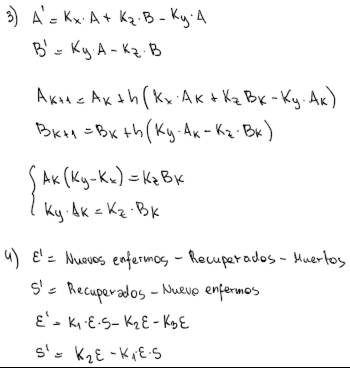 3) A' = Kx·A + Kz·B - Ky·A
B' = Ky·A - Kz·B
AK+1 = AK + h(Kx·AK + KzBK - Ky·AK)
BK+1 = BK + h(Ky·AK - Kz·BK)
{ AK(Ky-Kx) = KzBK
Ky·AK = Kz·BK
4) E' = Nuevos enfermos - Recuperados - Muertos
S' = Recuperados - Nuevo enfermos
E' = K1·E·S - K2E - K3E
S' = K2E - K1E·S